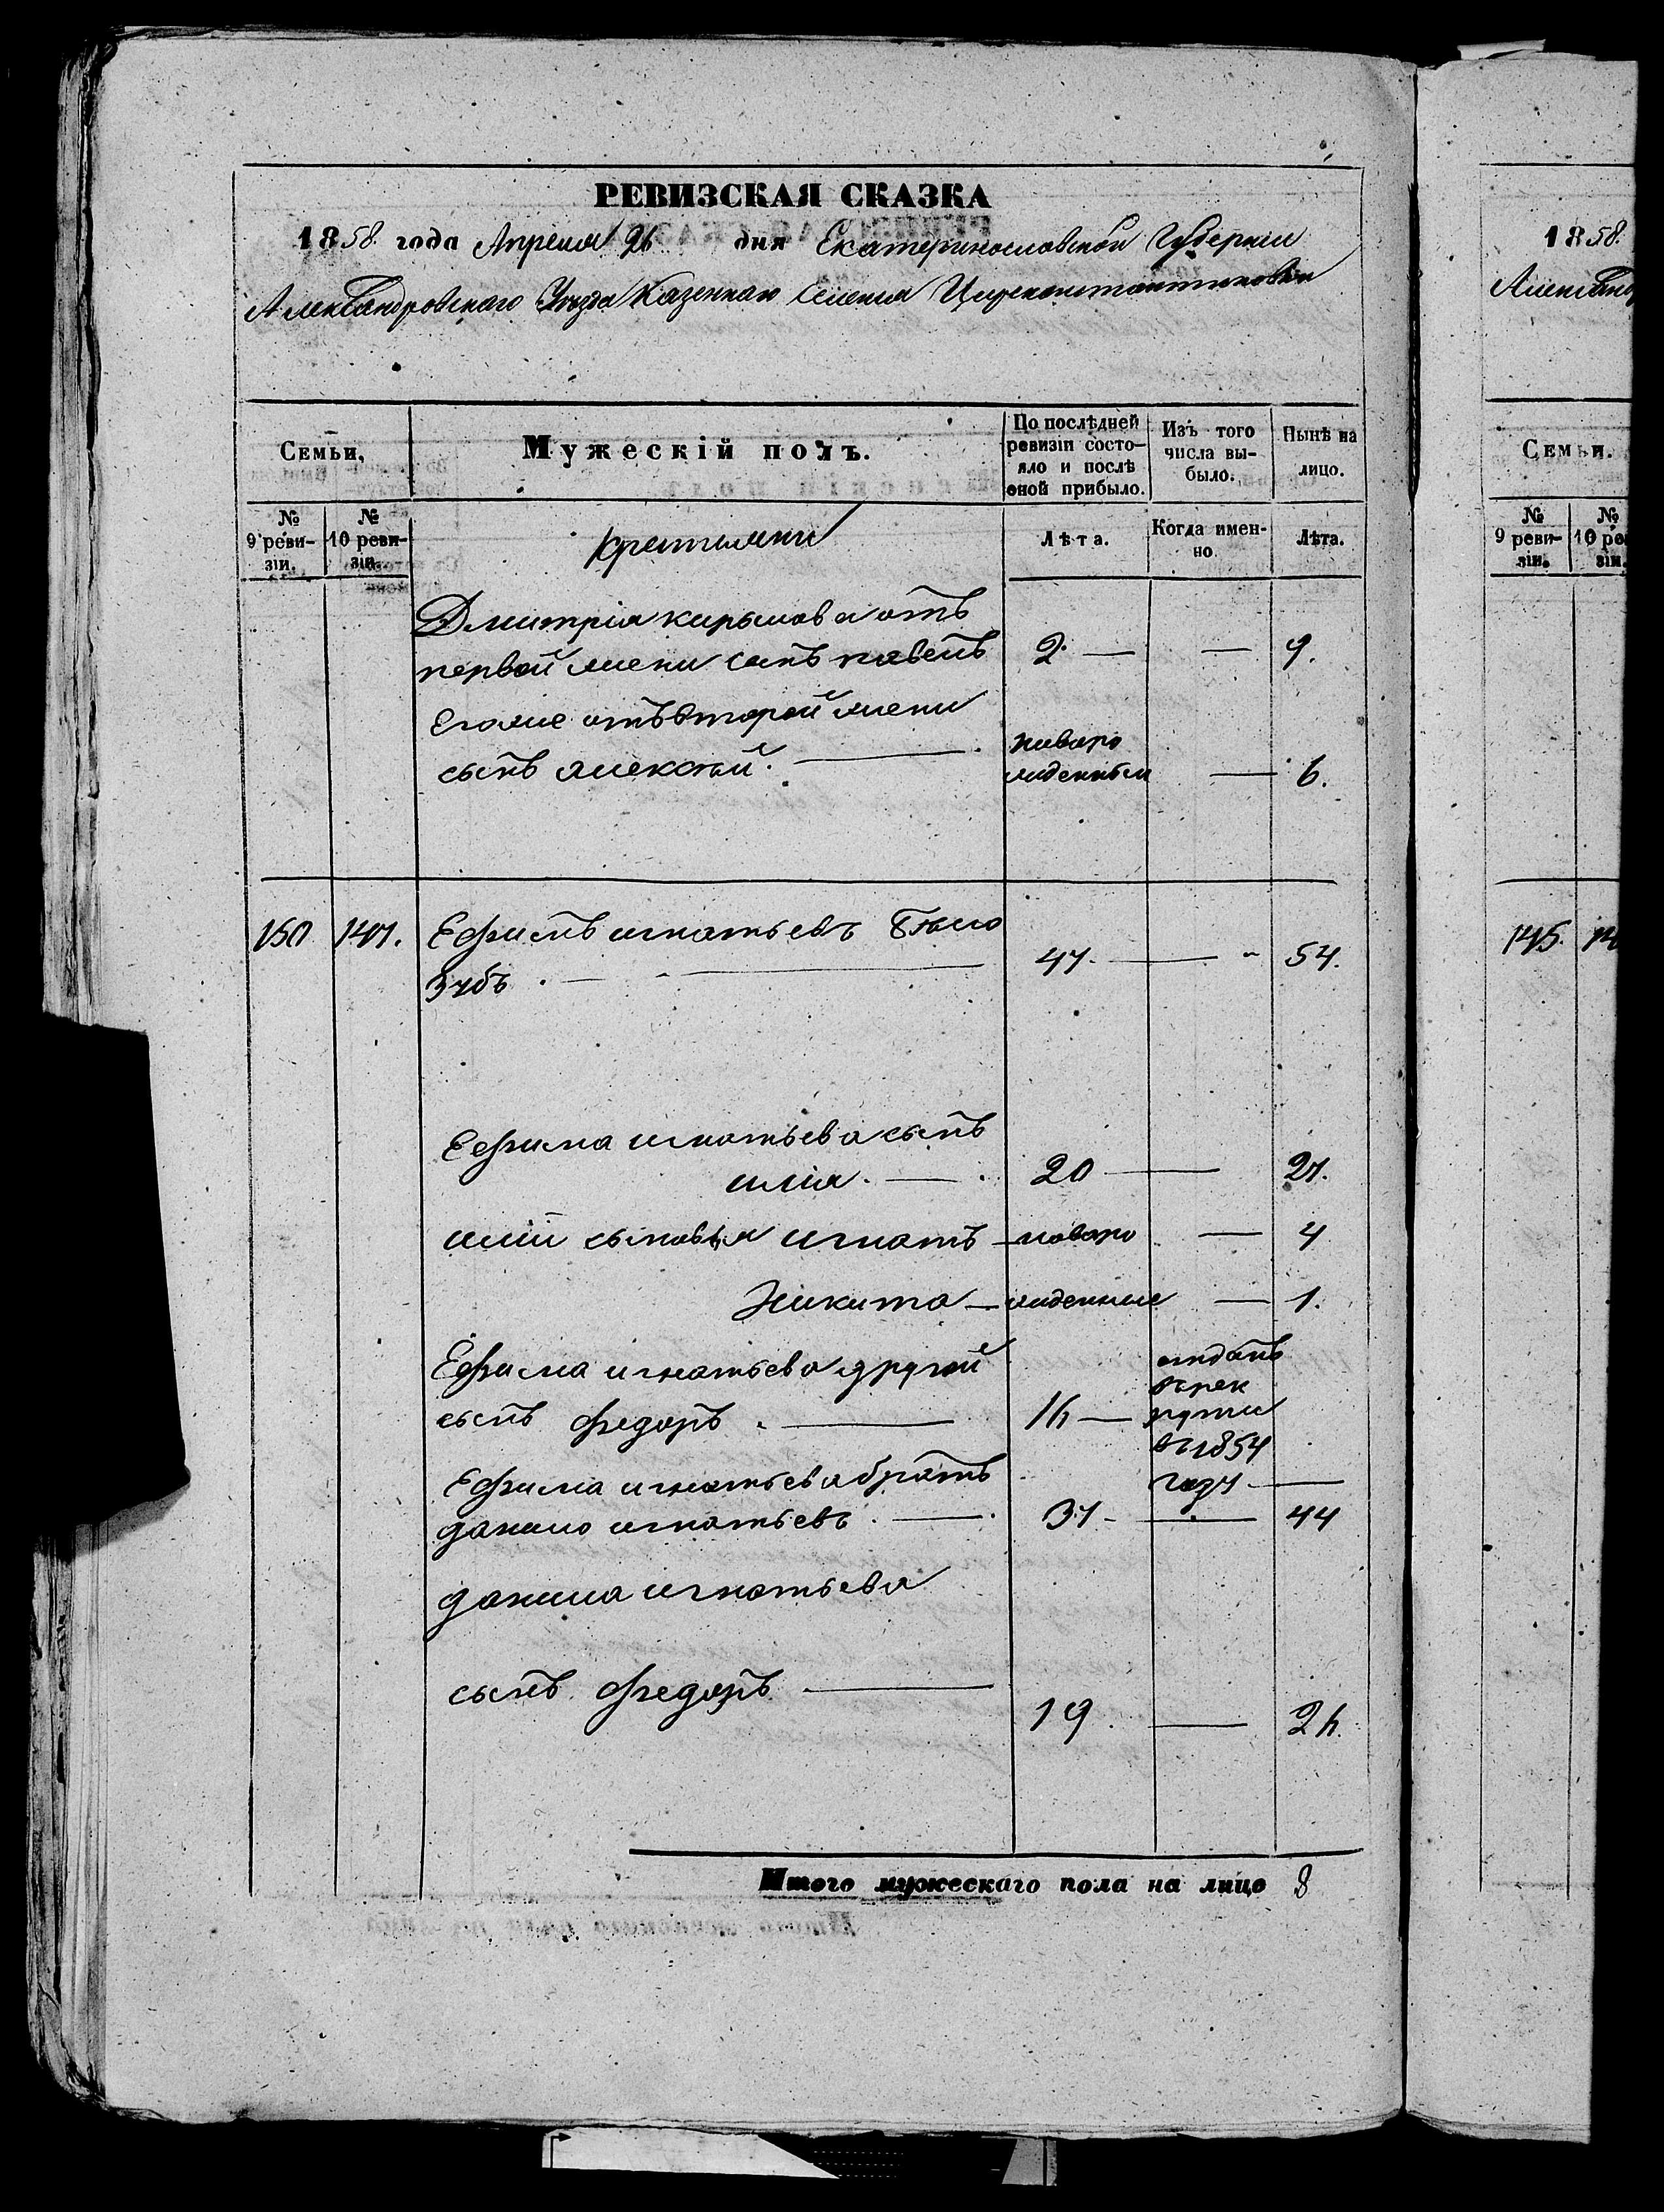 РЕВИЗСКАЯ СКАЗКА
1858 года Апреля 26 дня Екатеринославской Губернии
Александровского Уѣзда Казеннаго Селения Цареконстантиновки
Семьи,
Мужескій полъ.
По послѣдней ревизіи состо-
яло и послѣ
оной прибыло.
Изъ того
числа вы-
было.
Нынѣ на
лицо.
№
9 реви-
зіи.
№
10 реви-
зіи.
Лѣта.
Когда имен-
но.
Лѣта.
Дмитрія кирылова отъ
первой жены сынъ павелъ 2 — — 9.
Егоже отъ второй жены
сынъ алексѣй. — новоро
жденный — 6.
150 147. Ефимъ игнатьевъ Бѣло
зубъ. — 47 — 54.
Ефима игнатьева сынъ
илія. — 20 — 27.
иліи сыновья игнатъ — новоро — 4
Никита — жденные — 1.
Ефима игнатьева другой
сынъ федоръ. — 16 —
отданъ
в рек
руты
в 1854
году —
Ефима игнатьева братъ
данило игнатьевъ. — 37 — 44
данила игнатьева
сынъ федоръ — 19. — 26.
Итого мужескаго пола на лицо 8
1858.
Семьи.
№
9 реви-
зіи.
№
10 ре
зіи.
145.